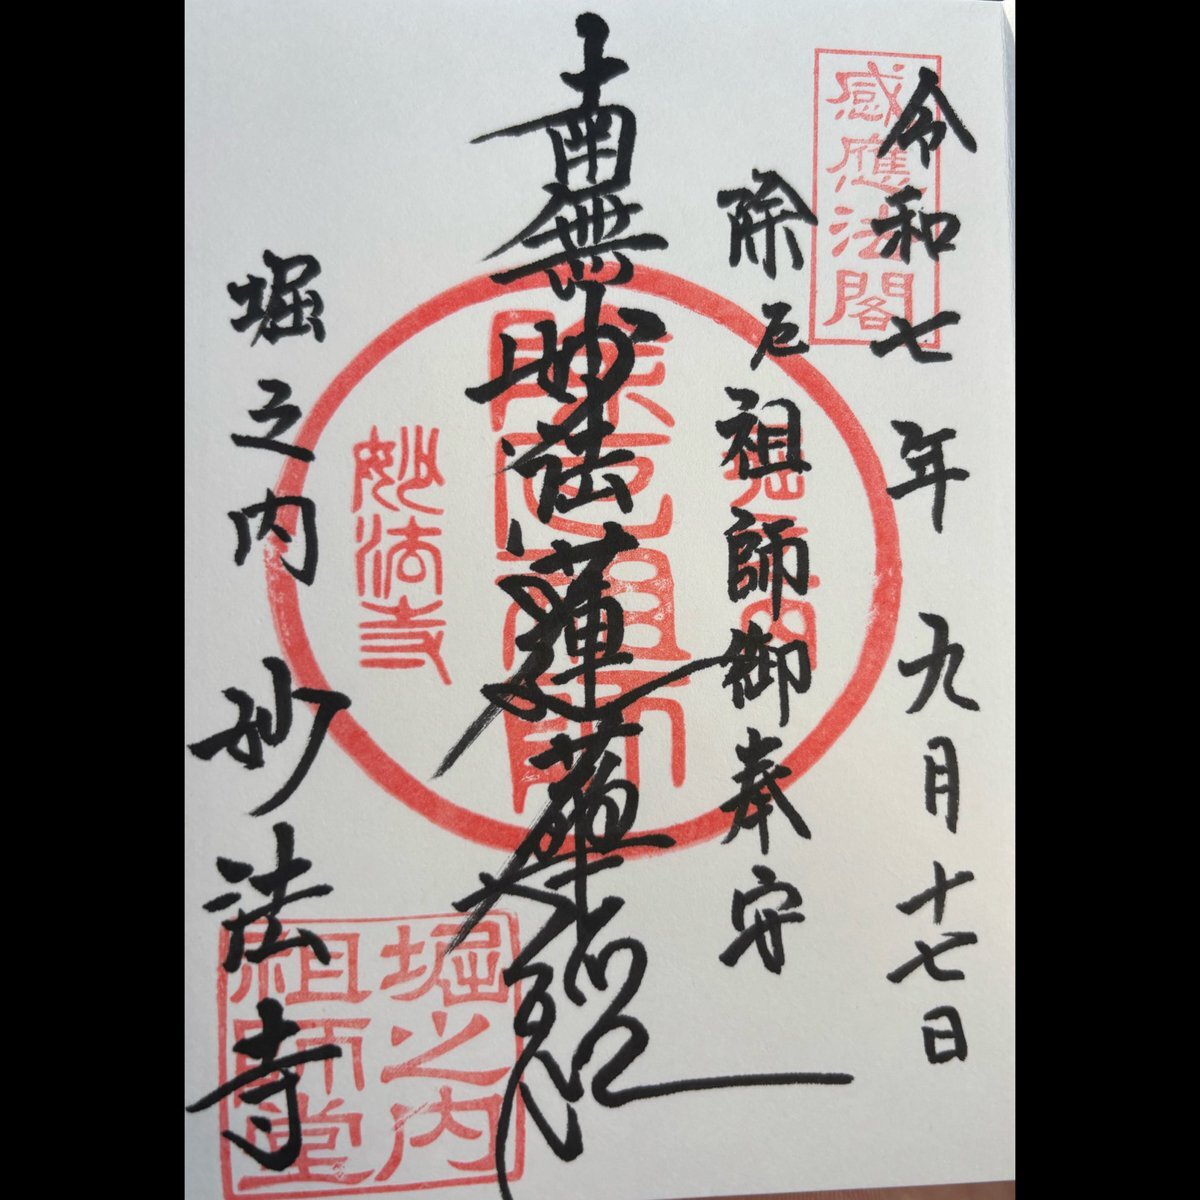 感應法閣
令和七年九月十七日
除厄祖師御奉守
堀之内
南無妙法蓮華経
除厄祖師
妙法寺
堀之内妙法寺
堀之内
祖師堂